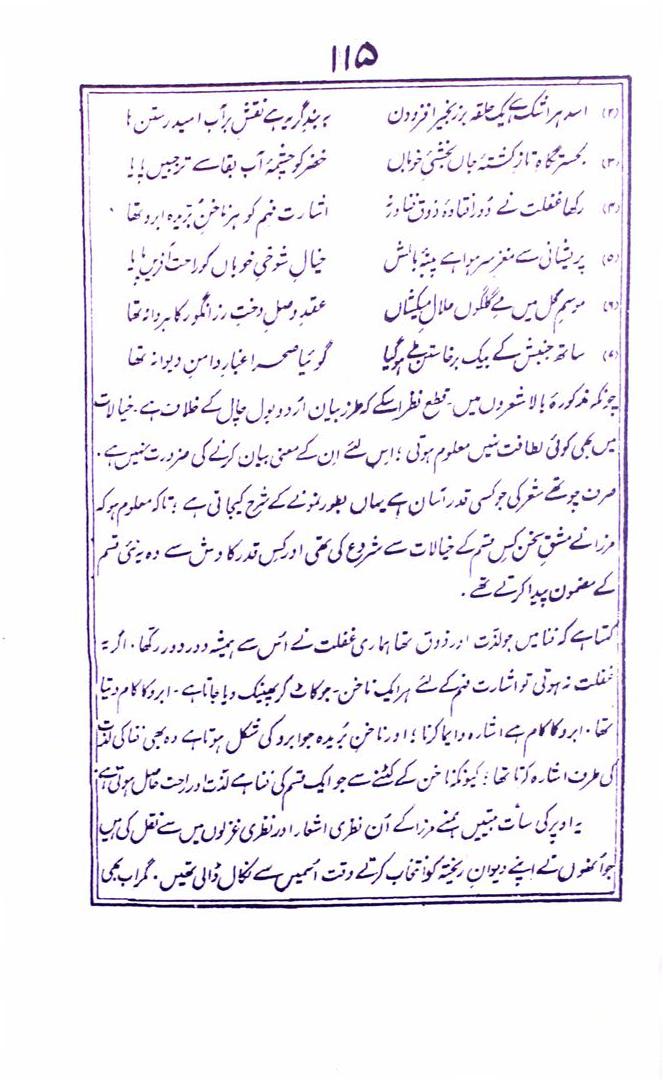 ۱۱۵
(۲) اسد ہر اشک ہے یک حلقہ بر زنجیر افزودن بہ بندِ گریہ ہے نقش بر آب امید رستن ہا
(۳) بحسرتگاہِ نازِ کشتۂ جاں بخشیٔ خوباں خضر کو چشمۂ آب بقا سے تر جبیں پایا
(۴) رکھا غفلت نے دُور افتادۂ ذوقِ فنا ورنہ اشارت فہم کو ہر ناخنِ بُریدہ ابرو تھا
(۵) پریشانی سے مغزِ سر ہوا ہے پنبۂ بالش خیالِ شوخیِ خوباں کو راحت آفریں پایا
(۶) موسمِ گل میں مے گلگوں حلالِ میکشاں عقدِ وصلِ دختِ رز انگور کا ہر دانہ تھا
(۷) ساتھ جنبش کے بیک برخاستن طے ہو گیا گوئیا صحرا غبارِ دامنِ دیوانہ تھا
چونکہ مذکورۂ بالا شعروں میں۔ قطع نظر اسکے کہ طرز بیان اُردو بول چال کے خلاف ہے۔ خیالات
میں بھی کوئی لطافت نہیں معلوم ہوتی؛ اس لئے ان کے معنی بیان کرنے کی ضرورت نہیں ہے۔
صرف چوتھے شعر کی جو کسی قدر آسان ہے یہاں بطور نمونے کے شرح کیجاتی ہے؛ تاکہ معلوم ہو کہ
مرزا نے مشقِ سخن کس قسم کے خیالات سے شروع کی تھی اور کس قدر کاوش سے وہ یہ نئی قسم
کے مضمون پیدا کرتے تھے۔
کہتا ہے کہ فنا میں جو لذّت اور ذوق تھا ہماری غفلت نے اُس سے ہمیشہ دور دور رکھا۔ اگر یہ
غفلت نہ ہوتی تو اشارت فہم کے لئے ہر ایک ناخن۔ جو کاٹ کر پھینک دیا جاتا ہے۔ ابرو کا کام دیتا
تھا۔ ابرو کا کام ہے اشارہ و ایما کرنا؛ اور ناخنِ بُریدہ جو ابرو کی شکل ہوتا ہے وہ بھی فنا کی لذت
کی طرف اشارہ کرتا تھا؛ کیونکہ ناخن کے کٹنے سے جو ایک قسم کی فنا ہے لذّت اور راحت حاصل ہوتی ہے
یہ اوپر کی سات بیتیں ہمنے مرزا کے اُن نظری اشعار اور نظری غزلوں میں سے نقل کی ہیں
جو اُنھوں نے اپنے دیوانِ ریختہ کو انتخاب کرتے وقت اُسمیں سے نکال ڈالی تھیں۔ مگر اب بھی